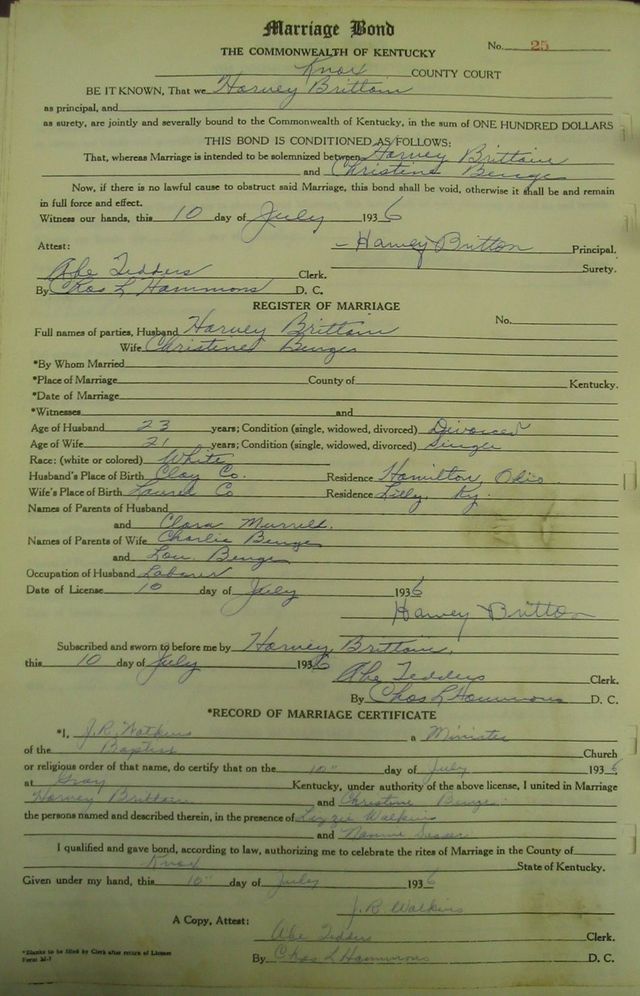 Marriage Bond
No. 25
THE COMMONWEALTH OF KENTUCKY
Knox COUNTY COURT
BE IT KNOWN, That we Harvey Brittain
as principal, and
as surety, are jointly and severally bound to the Commonwealth of Kentucky, in the sum of ONE HUNDRED DOLLARS
THIS BOND IS CONDITIONED AS FOLLOWS:
That, whereas Marriage is intended to be solemnized between Harvey Brittain
and Christine Benge
Now, if there is no lawful cause to obstruct said Marriage, this bond shall be void, otherwise it shall be and remain
in full force and effect.
Witness our hands, this 10 day of July 1936
Attest: Harvey Britton Principal.
Abe Tedders Clerk. Surety.
By Chas L Hammons D. C.
REGISTER OF MARRIAGE
Full names of parties, Husband Harvey Brittain No.
Wife Christene Benge
*By Whom Married
*Place of Marriage County of Kentucky.
*Date of Marriage
*Witnesses and
Age of Husband 23 years; Condition (single, widowed, divorced) Divorced
Age of Wife 21 years; Condition (single, widowed, divorced) Single
Race: (white or colored) White
Husband's Place of Birth Clay Co. Residence Hamilton, Ohio
Wife's Place of Birth Laurel Co Residence Lilly, Ky.
Names of Parents of Husband
and Clara
Names of Parents of Wife Charlie Benge
and Lou Benge
Occupation of Husband Laborer
Date of License 10 day of July 1936
Harvey Britton
Subscribed and sworn to before me by Harvey Brittain,
this 10 day of July 1936
Abe Tedders Clerk.
By Chas L Hammons D. C.
*RECORD OF MARRIAGE CERTIFICATE
*I, J. R. Watkins a Minister
of the Baptist Church
or religious order of that name, do certify that on the 10" day of July 1936
at Gray Kentucky, under authority of the above license, I united in Marriage
Harvey Brittain and Christine Benge
the persons named and described therein, in the presence of Lizzie Watkins
and Nannie
I qualified and gave bond, according to law, authorizing me to celebrate the rites of Marriage in the County of
Knox State of Kentucky.
Given under my hand, this 10" day of July 1936
J. R. Watkins
A Copy, Attest:
Abe Tedders Clerk.
*Blanks to be filled by Clerk after return of License
Form M-7
By Chas L Hammons D. C.